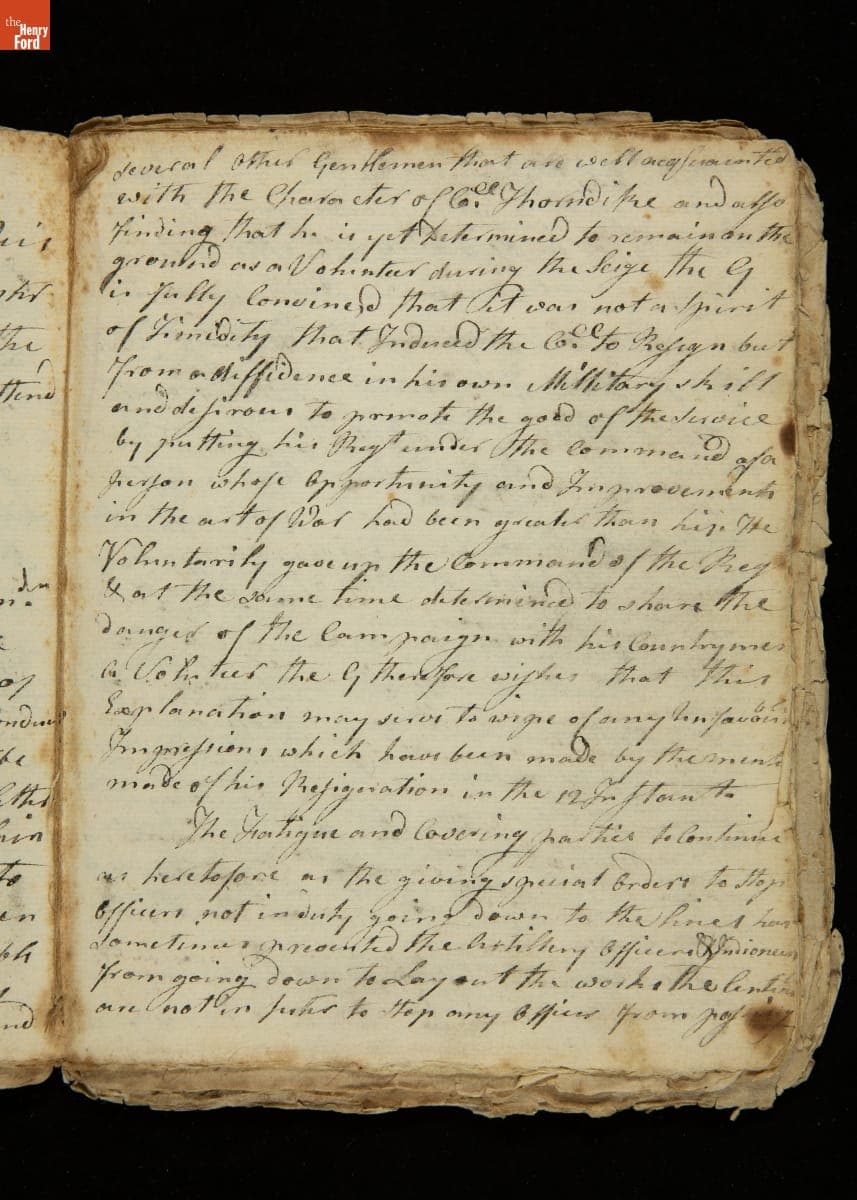 the
Henry
Ford
several other Gentlemen that are well acquainted
with the Character of Coll Thorndike and also
Finding that he is yet Determined to remain on the
ground as a Volunteer during the Seige the G
is fully Convinced that it was not a Spirit
of Timidity that Induced the Coll to Resign but
From a diffidence in his own Millitary skill
and desirous to promote the good of the service
by putting his Regt under the Command of a
person whose opportunity and Improvements
in the art of War had been greater than his He
Voluntarily gave up the Command of the Reg
& at the same time determined to share the
danger of the Campaign with his Countrymen
a Volunteer the G therefore wishes that this
Explanation may serve to wipe of any Unfavour
Impressions which have been made by the ment
made of his Resignation in the 12 Instant
The Fatigue and Covering parties to Continue
as heretofore as the giving special orders to stop
officers not in duty going down to the lines has
sometimes prevented the Artillery officers &
from going down to Lay out the works the Centin
are not in future to stop any officer from
ris
the
ttend
of
be
to
en
nd